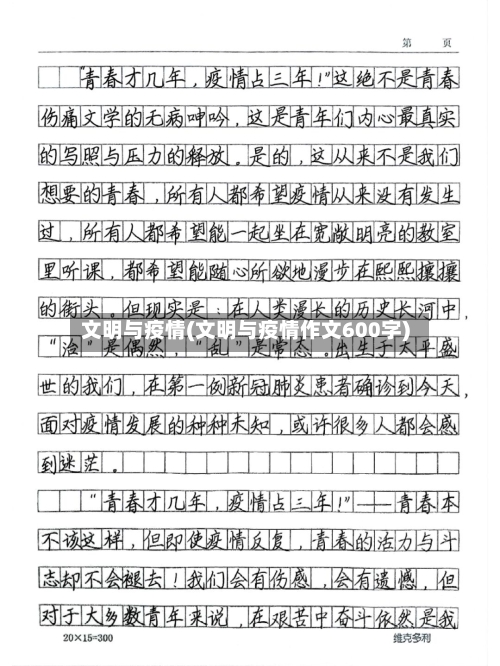 第 页
“青春才几年，疫情占三年！”这绝不是青春
伤痛文学的无病呻吟，这是青年们内心最真实
的写照与压力的释放。是的，这从来不是我们
想要的青春，所有人都希望疫情从来没有发生
过，所有人都希望能一起坐在宽敞明亮的教室
里听课，都希望能随心所欲地漫步在熙熙攘攘
的街头。但现实是：在人类漫长的历史长河中，
文明与疫情(文明与疫情作文600字)
“治”是偶然，“乱”是常态。出生于太平盛
世的我们，在第一例新冠肺炎患者确诊到今天，
面对疫情发展的种种未知，或许很多人都会感
到迷茫。
“青春才几年，疫情占三年！”——青春本
不该这样，但即使疫情反复，青春的活力与斗
志却不会褪去！我们会有伤感，会有遗憾，但
对于大多数青年来说，在艰苦中奋斗依然是我
20×15=300 维克多利